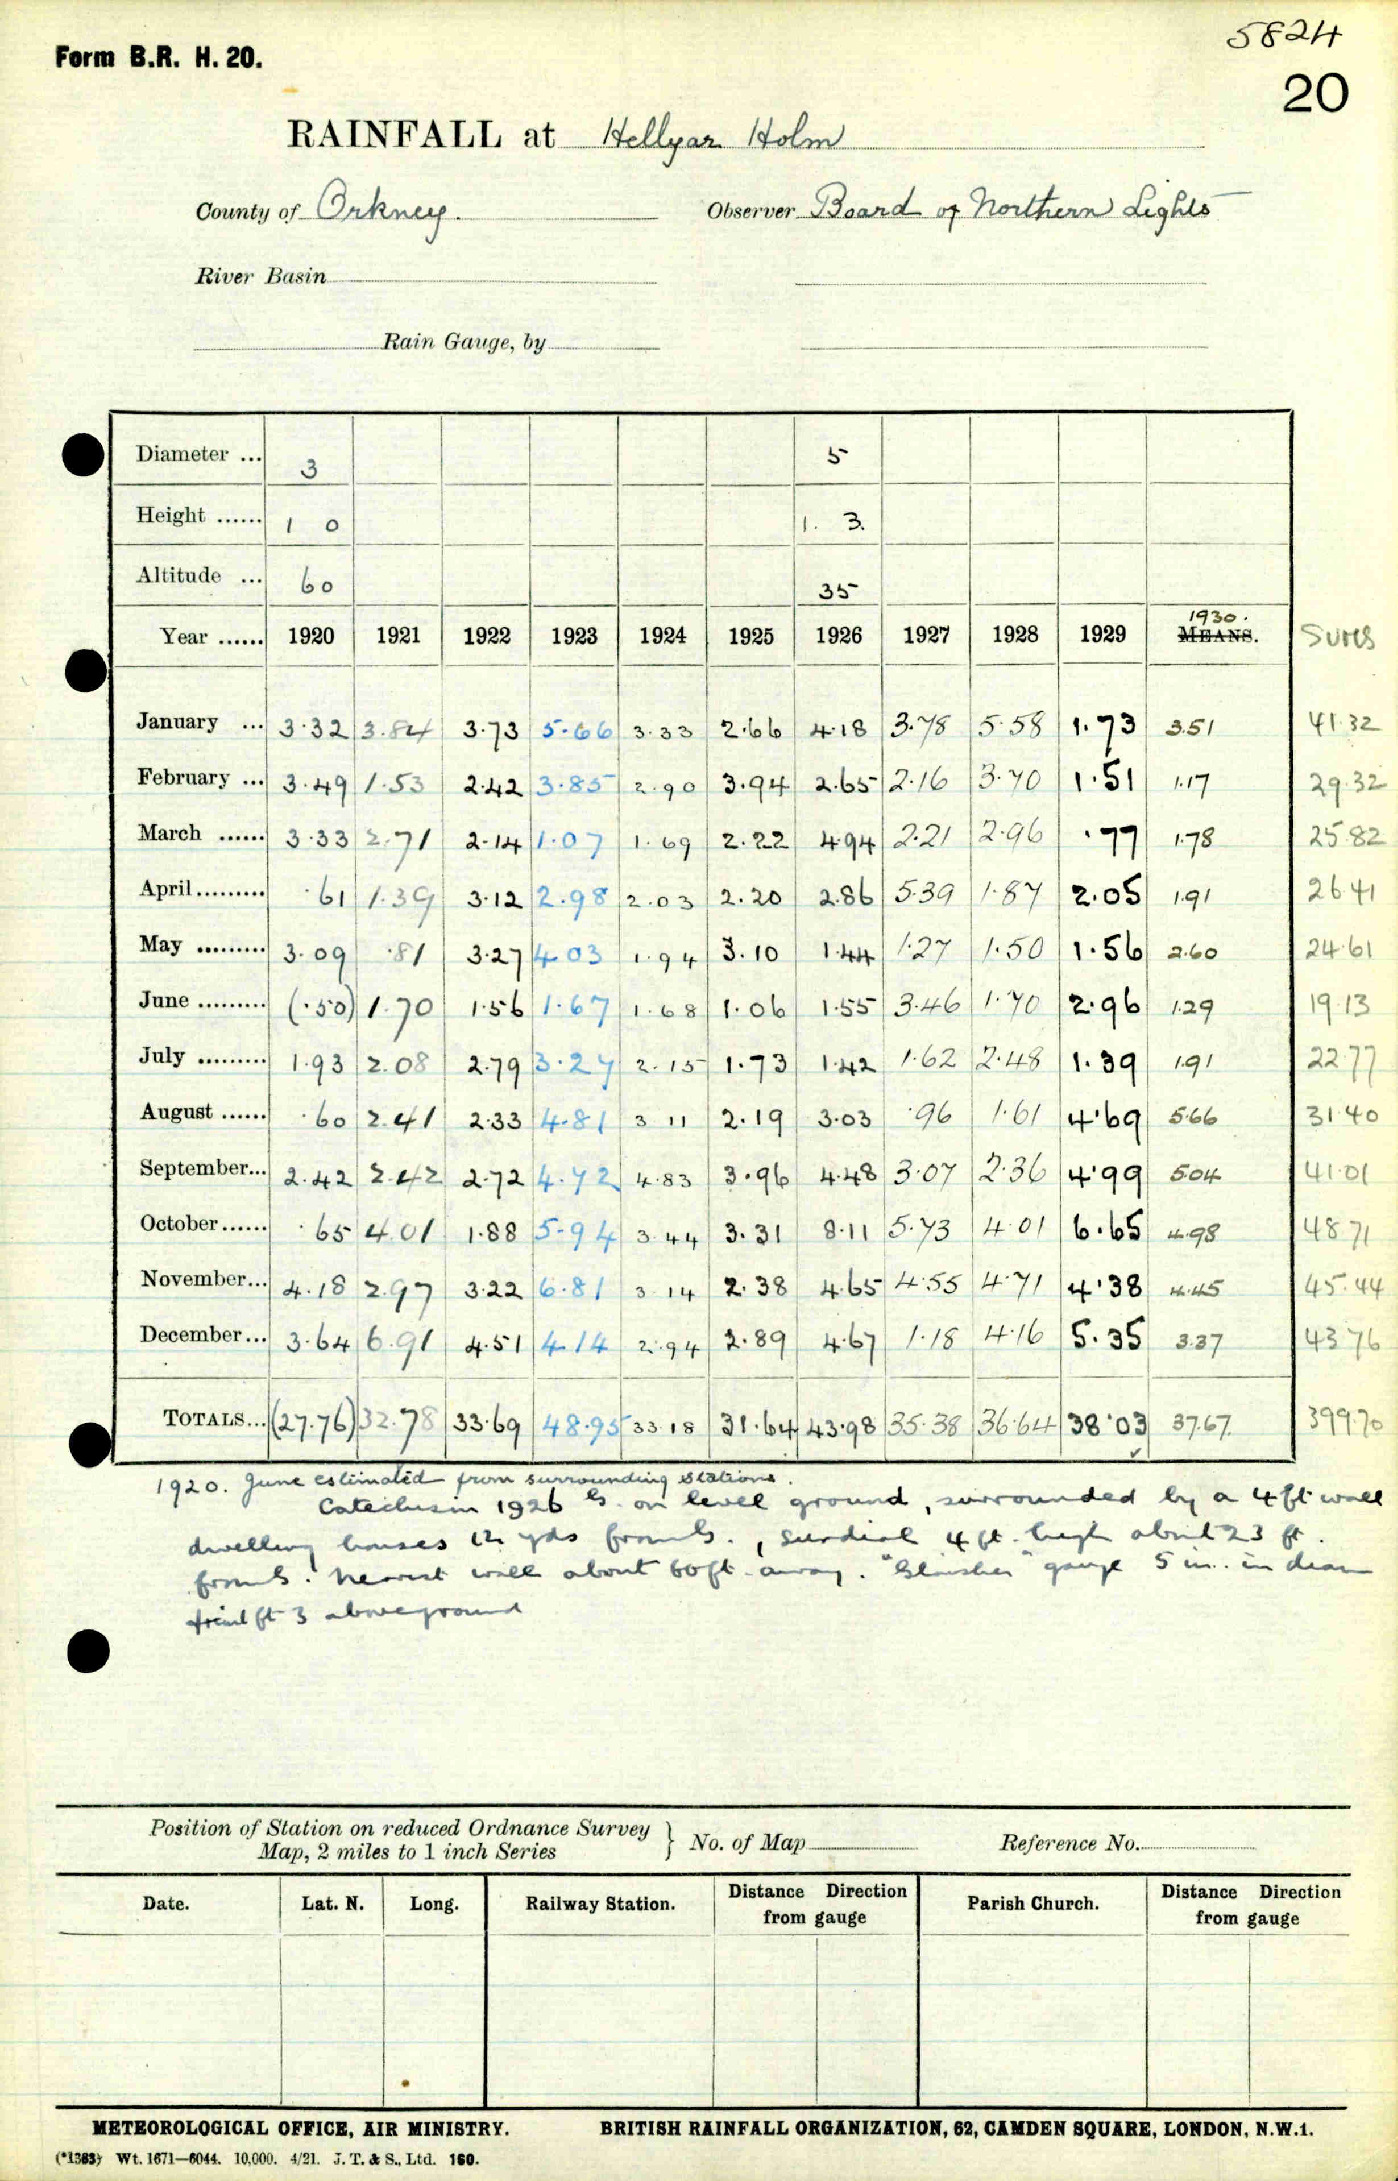 5824
Form B.R. H. 20.
20
RAINFALL at Hellyar Holm
County of Orkney. Observer Board of Northern Lights
River Basin
Rain Gauge, by
Diameter ... 3 5
Height ...... 1 0 1. 3.
Altitude ... 60 35
1930.
Year ...... 1920 1921 1922 1923 1924 1925 1926 1927 1928 1929 MEANS. Sums
January ... 3.32 3.84 3.73 5.66 3.33 2.66 4.18 3.78 5.58 1.73 3.51 41.32
February ... 3.49 1.53 2.42 3.85 2.90 3.94 2.65 2.16 3.70 1.51 1.17 29.32
March ...... 3.33 2.71 2.14 1.07 1.69 2.22 4.94 2.21 2.96 .77 1.78 25.82
April ......... .61 1.39 3.12 2.98 2.03 2.20 2.86 5.39 1.87 2.05 1.91 26.41
May ......... 3.09 .81 3.27 4.03 1.94 3.10 1.44 1.27 1.50 1.56 2.60 24.61
June ......... (.50) 1.70 1.56 1.67 1.68 1.06 1.55 3.46 1.70 2.96 1.29 19.13
July ......... 1.93 2.08 2.79 3.27 2.15 1.73 1.42 1.62 2.48 1.39 1.91 22.77
August ...... .60 2.41 2.33 4.81 3 11 2.19 3.03 .96 1.61 4.69 5.66 31.40
September... 2.42 2.42 2.72 4.72 4.83 3.96 4.48 3.07 2.36 4.99 5.04 41.01
October...... .65 4.01 1.88 5.94 3.44 3.31 8.11 5.73 4.01 6.65 4.98 48.71
November... 4.18 2.97 3.22 6.81 3 14 2.38 4.65 4.55 4.71 4.38 4.45 45.44
December... 3.64 6.91 4.51 4.14 2.94 2.89 4.67 1.18 4.16 5.35 3.37 43.76
TOTALS... (27.76) 32.78 33.69 48.95 33.18 31.64 43.98 35.38 36.64 38.03 37.67. 399.70
1920. June estimated from surrounding stations.
1926 G. on level ground, surrounded by a 4 ft wall
dwelling houses 12 yds from G., Sundial 4 ft high about 23 ft.
from G. Nearest wall about 60 ft away. "Glaisher" gauge 5 in. in diam
ft 3 above ground
Position of Station on reduced Ordnance Survey
Map, 2 miles to 1 inch Series } No. of Map Reference No.
Date. Lat. N. Long. Railway Station. Distance Direction from gauge Parish Church. Distance Direction from gauge
METEOROLOGICAL OFFICE, AIR MINISTRY. BRITISH RAINFALL ORGANIZATION, 62, CAMDEN SQUARE, LONDON, N.W.1.
(*1383) Wt. 1671—6044. 10,000. 4/21. J. T. & S., Ltd. 160.